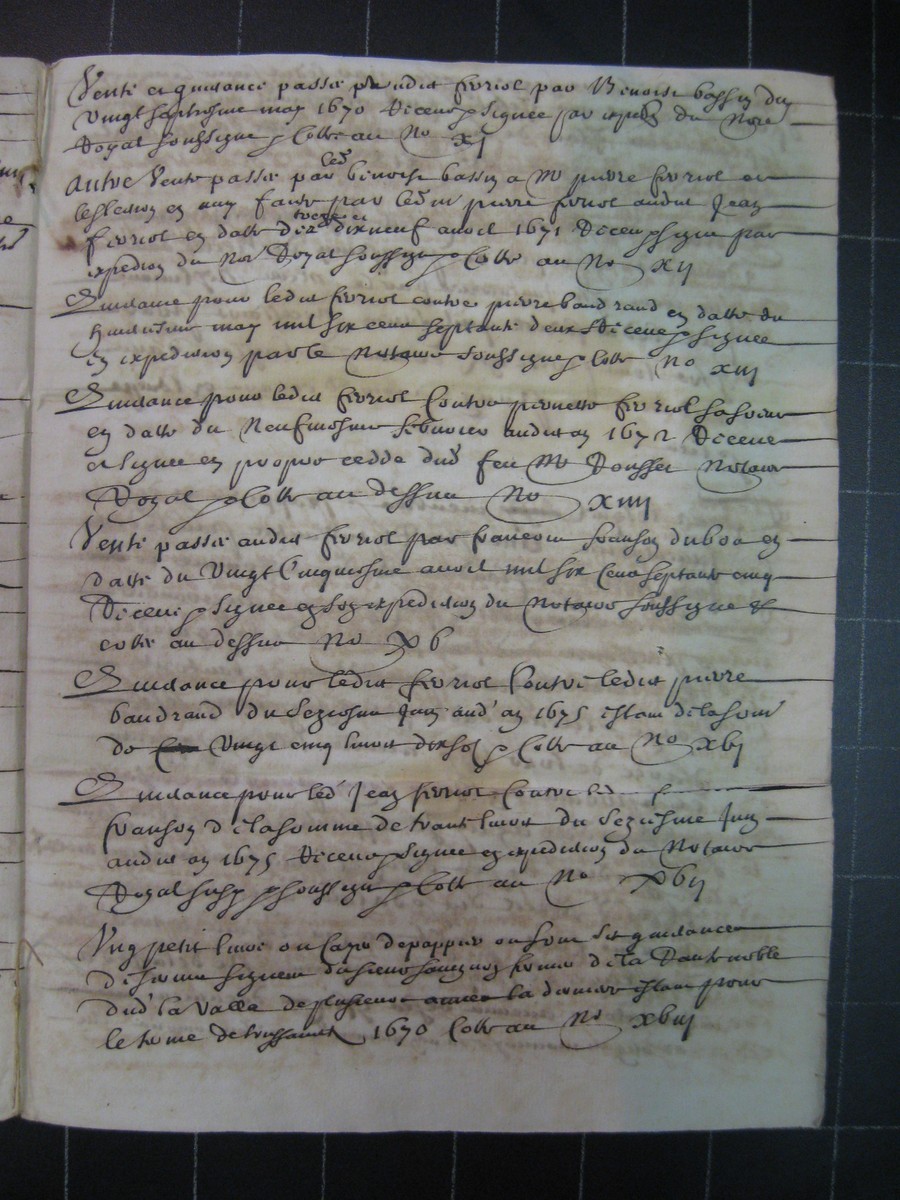 Vente et quittance passée audit ferriol par Benoist bassin du
vingt septiesme may 1670 Receue & signée par exped du Nore
Royal soussigné & Cotte au No xj
Autre Vente passée par led benoist bassin a Me pierre ferriol et
eslection en amy faite par led me pierre ferriol audit Jean
ferriol en datte dixneuf avril 1671 Receu & signée par
expedion du Nore Royal soussigné & Cotte au No xij
Quittance pour ledit ferriol contre pierre baudrand en datte du
may mil six cent septante deux Receue & signée
en expedition par le Notaire soussigné & Cotte No xiij
Quittance pour ledit ferriol Contre pierrette ferriol sa soeur
en datte du Neufviesme febvrier audit an 1672 Receue
et signée en propre cedde dud feu Me Rousset Notaire
Royal & Cotte au dessus No xiiij
Vente passée audit ferriol par francois franson duboa en
datte du Vingt Cinquiesme avril mil six Cent septante cinq
Receue & signée en son expedition du Notaire soussigné &
cotte au dessus No xb
Quittance pour ledit ferriol Contre ledit pierre
baudrand du Seziesme Juin aud an 1675 estant de la somme
de Vingt cinq livres dix sols & Cotte au No xbj
Quittance pour led Jean ferriol Contre led
franson de la somme de trante livres du Seziesme Juin
audit an 1675 Receue & signée en expedition du Notaire
Royal & soussigné & Cotte au No xbij
Ung petit livre ou Cayer de pappier ou sont des quittances
de ferme signees du sieur fermier de la Rante noble
dud la valle de plusieurs années la derniere estant pour
le terme de toussaints 1670 Cotte au No xbiij